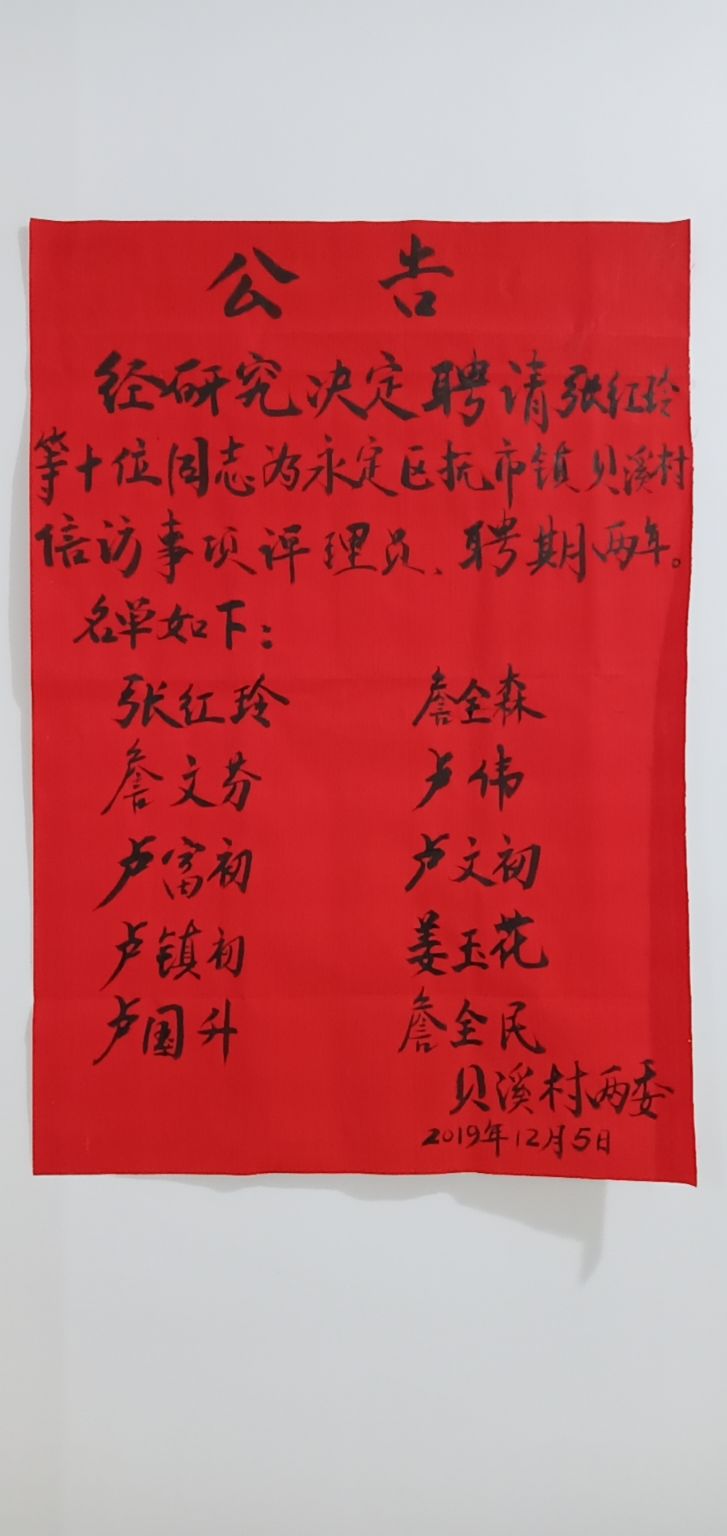 公 告
经研究决定聘请张红玲
等十位同志为永定区抚市镇贝溪村
信访事项评理员、聘期两年。
名单如下：
张红玲 詹全森
詹文芬 卢伟
卢富初 卢文初
卢镇初 姜玉花
卢国升 詹全民
贝溪村两委
2019年12月5日